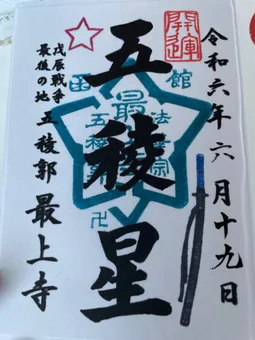 令和六年六月十九日
開運
五稜星
函館
最
法華宗
五稜郭
卍
戊辰戦争
最後の地
五稜郭 最上寺